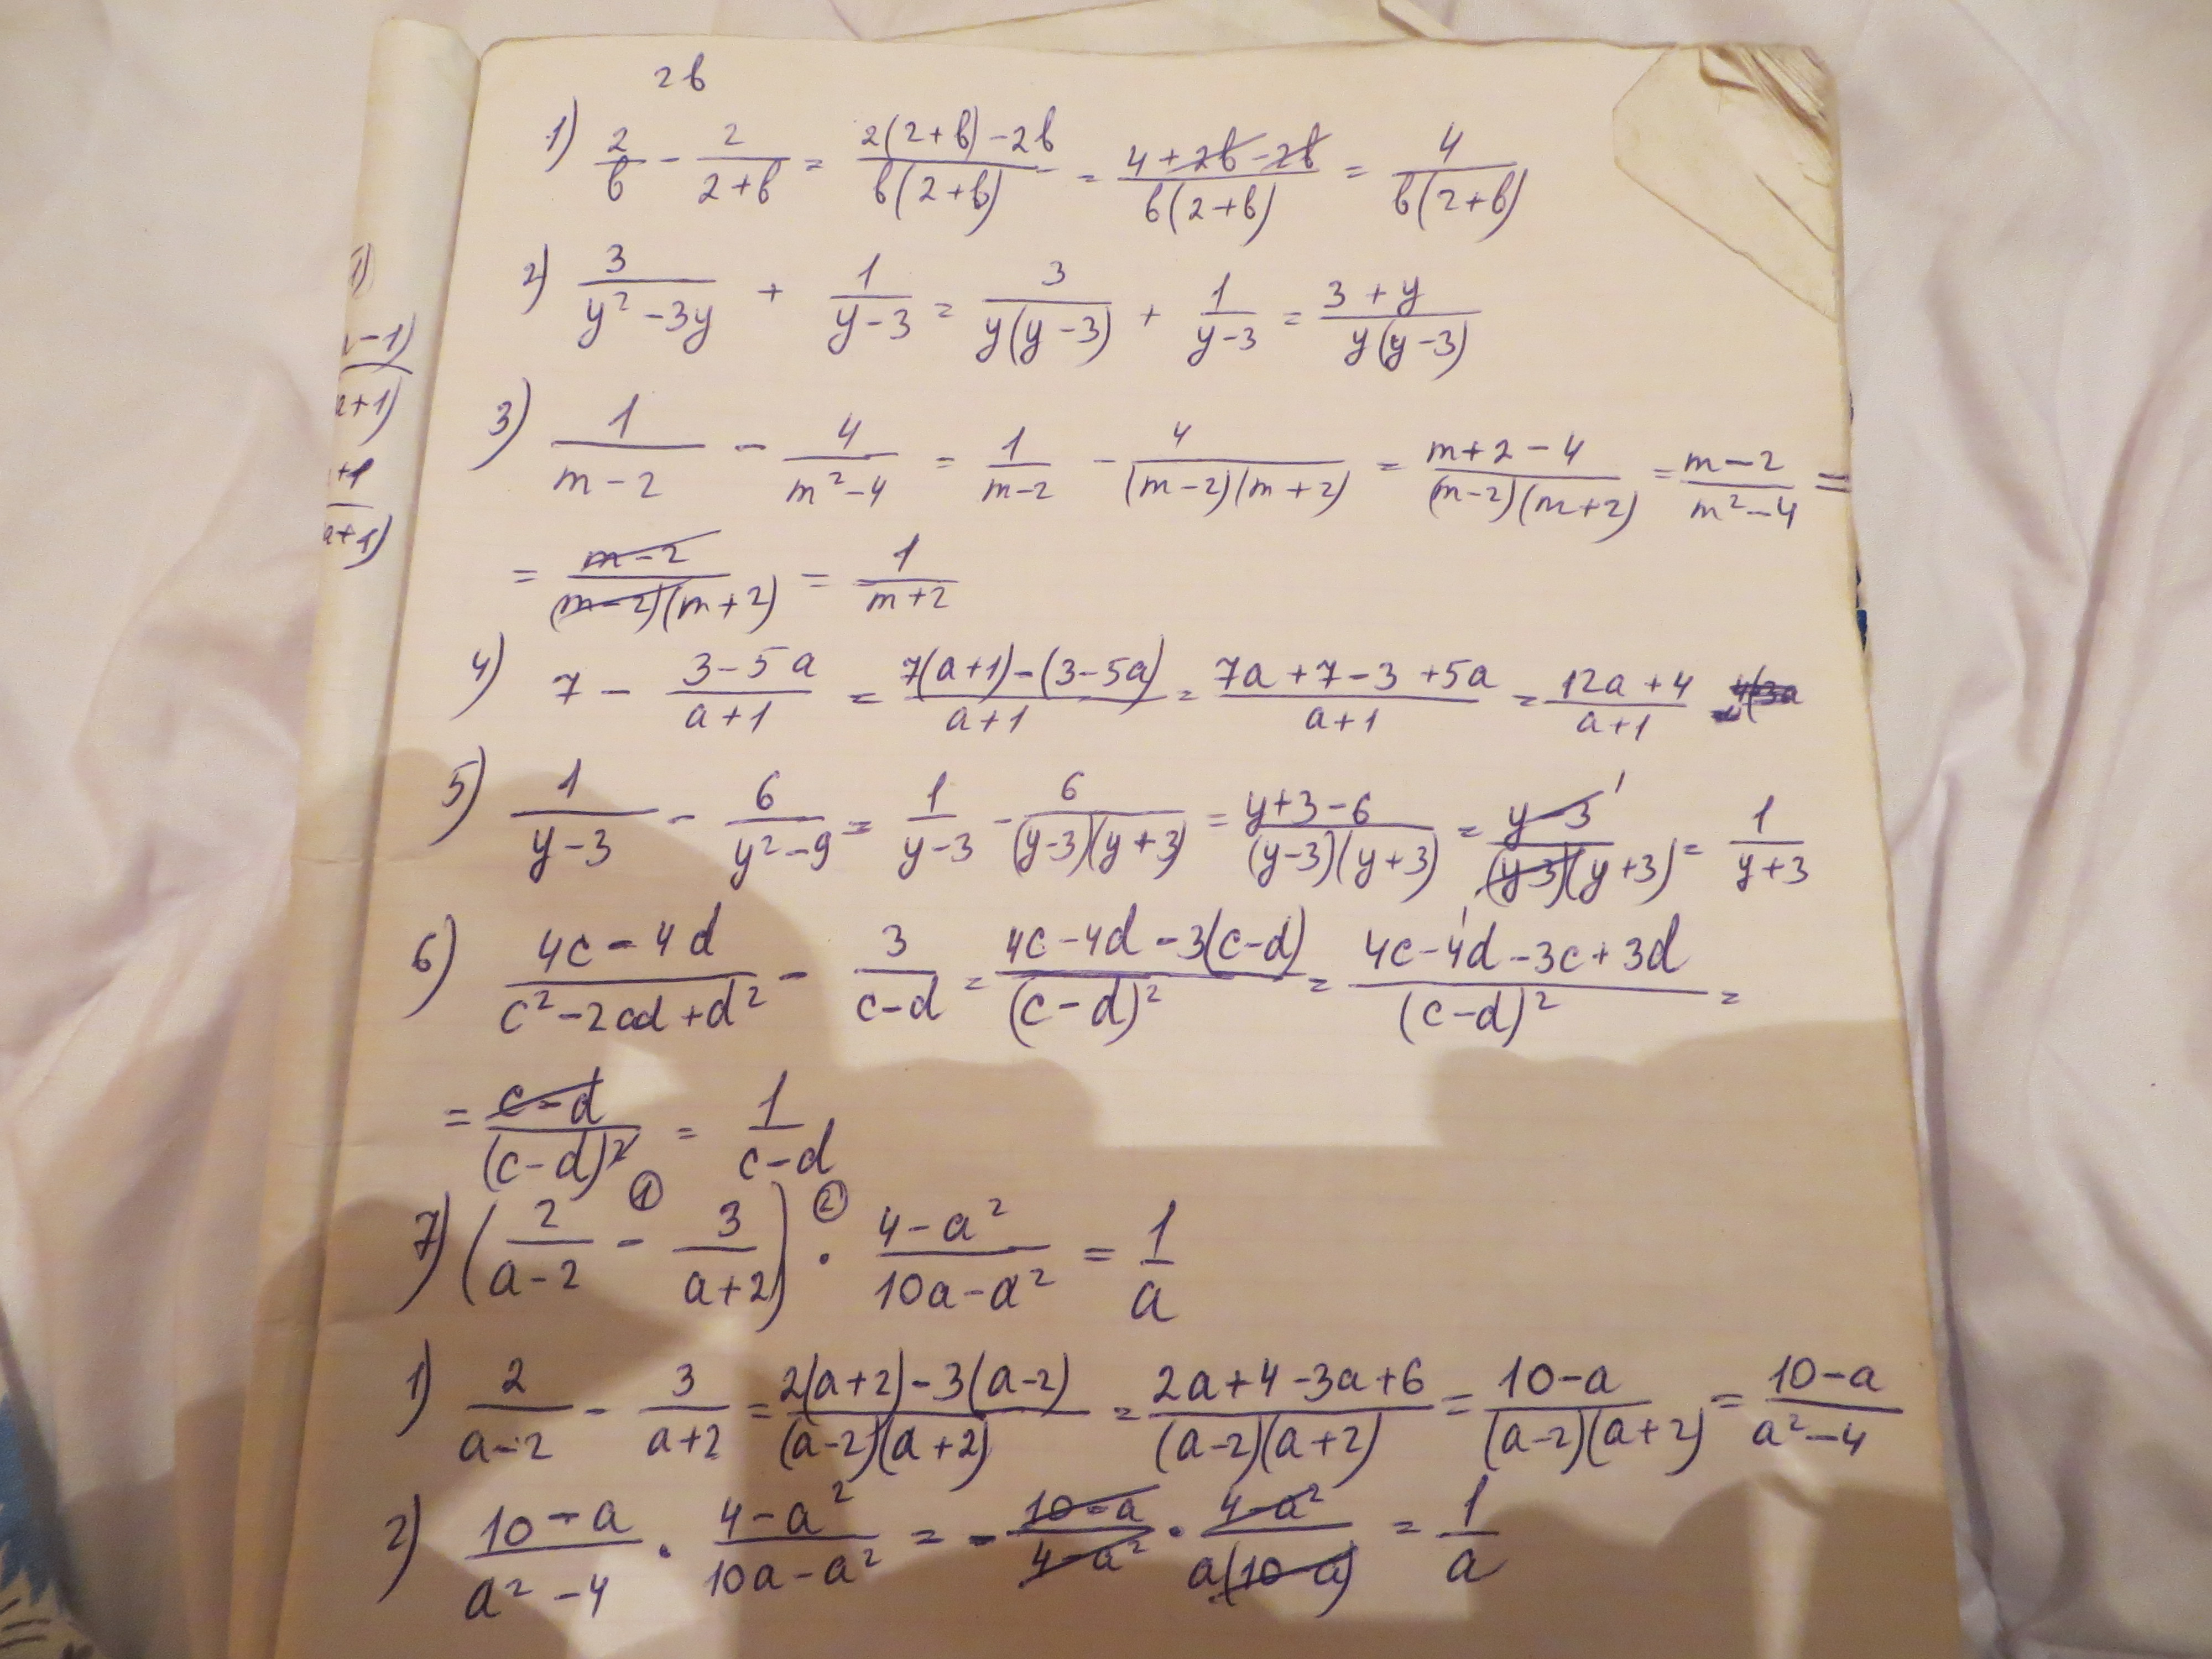 2b
1) 2/b - 2/(2+b) = (2(2+b)-2b)/(b(2+b)) = (4+2b-2b)/(b(2+b)) = 4/(b(2+b))
2) 3/(y²-3y) + 1/(y-3) = 3/(y(y-3)) + 1/(y-3) = (3+y)/(y(y-3))
3) 1/(m-2) - 4/(m²-4) = 1/(m-2) - 4/((m-2)(m+2)) = (m+2-4)/((m-2)(m+2)) = (m-2)/(m²-4) =
= (m-2)/((m-2)(m+2)) = 1/(m+2)
4) 7 - (3-5a)/(a+1) = (7(a+1)-(3-5a))/(a+1) = (7a+7-3+5a)/(a+1) = (12a+4)/(a+1)
5) 1/(y-3) - 6/(y²-9) = 1/(y-3) - 6/((y-3)(y+3)) = (y+3-6)/((y-3)(y+3)) = (y-3)/((y-3)(y+3)) = 1/(y+3)
6) (4c-4d)/(c²-2cd+d²) - 3/(c-d) = (4c-4d-3(c-d))/(c-d)² = (4c-4d-3c+3d)/(c-d)² =
= (c-d)/(c-d)² = 1/(c-d)
7) (2/(a-2) -① 3/(a+2)) ·② (4-a²)/(10a-a²) = 1/a
1) 2/(a-2) - 3/(a+2) = (2(a+2)-3(a-2))/((a-2)(a+2)) = (2a+4-3a+6)/((a-2)(a+2)) = (10-a)/((a-2)(a+2)) = (10-a)/(a²-4)
2) (10-a)/(a²-4) · (4-a²)/(10a-a²) = - (10-a)/(4-a²) · (4-a²)/(a(10-a)) = 1/a
-1)
a+1)
+1
a+1)